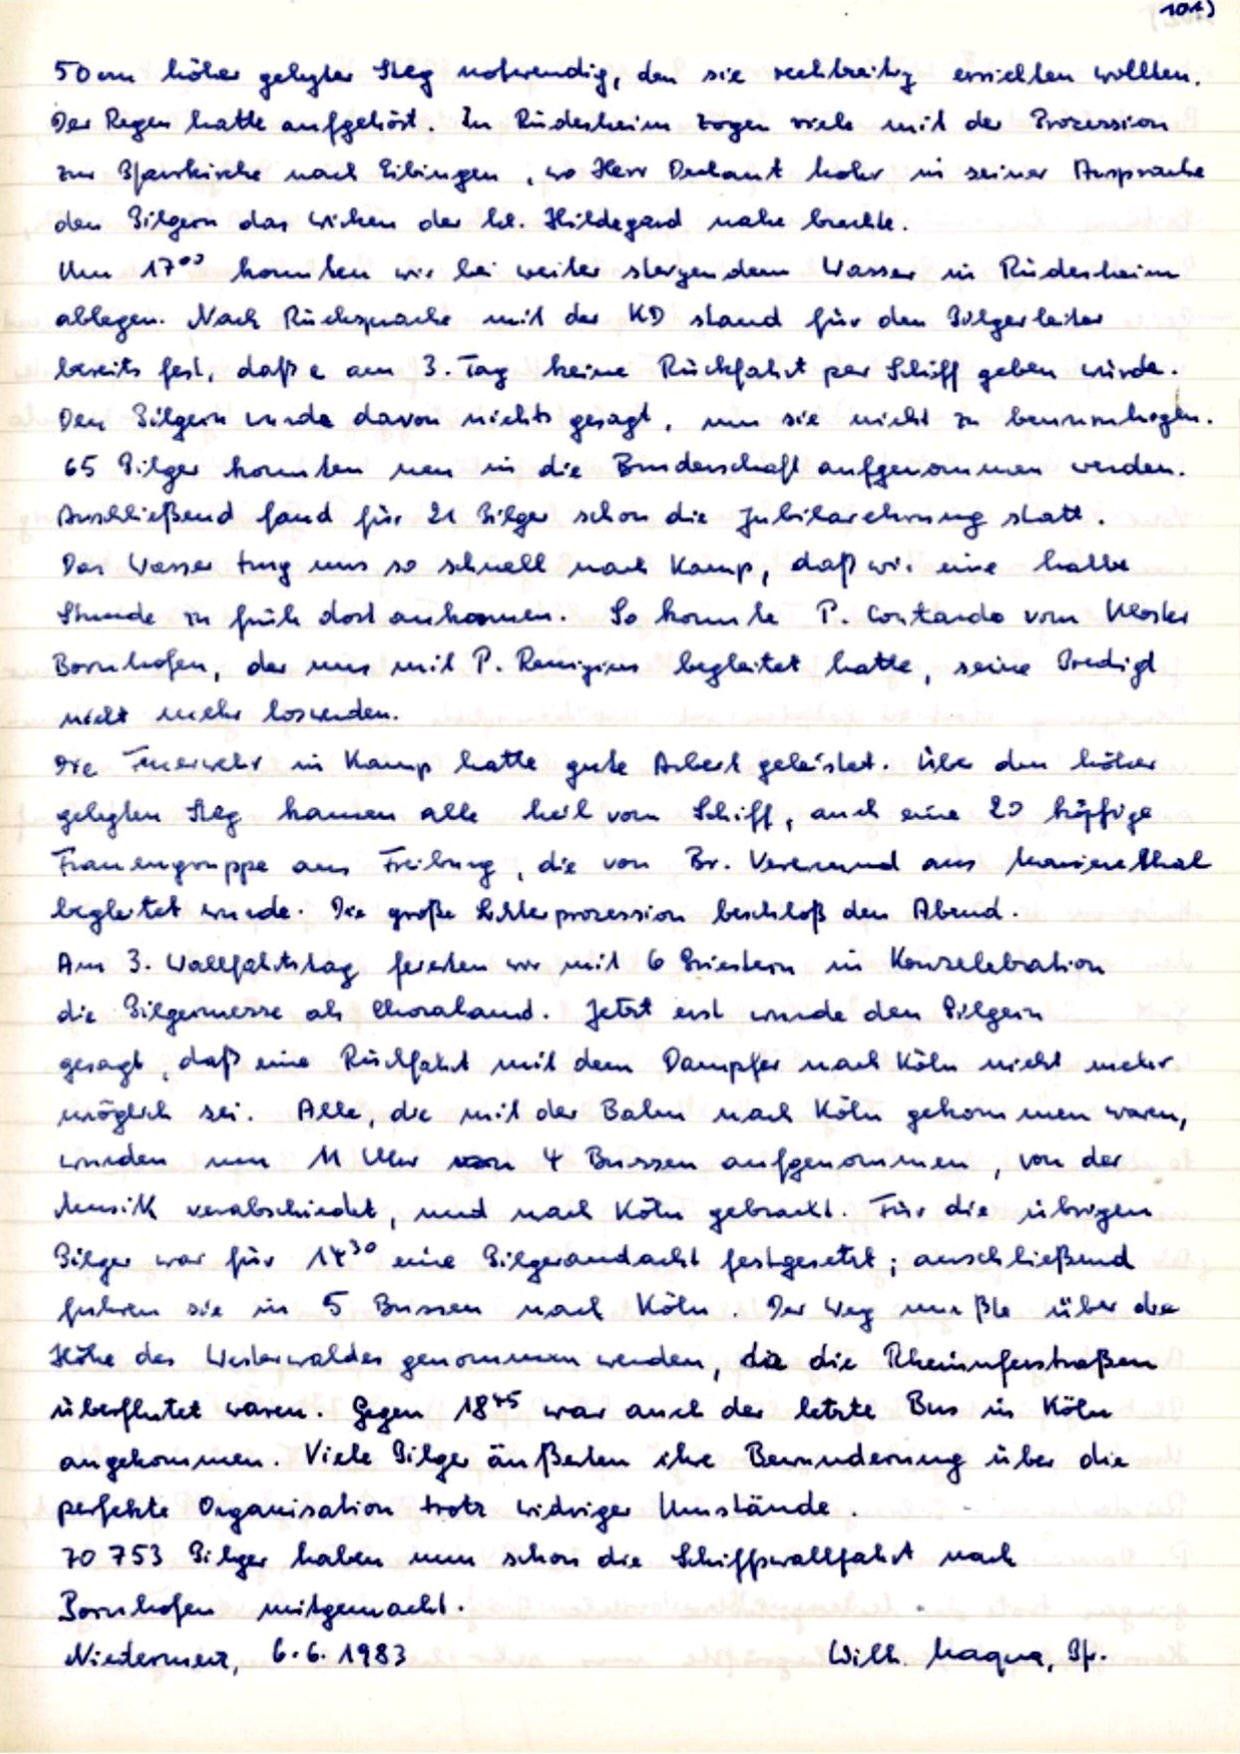 101)
50 cm höher gelegter Steg notwendig, den sie rechtzeitig errichten wollten.
Der Regen hatte aufgehört. In Rüdesheim zogen viele mit der Prozession
zur Pfarrkirche nach Eibingen, wo Herr Dechant in seiner Ansprache
den Pilgern das Wirken der hl. Hildegard nahe brachte.
Um 17⁰⁰ konnten wir bei weiter steigendem Wasser in Rüdesheim
ablegen. Nach Rücksprache mit der KD stand für den Pilgerleiter
bereits fest, daß e am 3. Tag keine Rückfahrt per Schiff geben würde.
Den Pilgern wurde davon nichts gesagt, um sie nicht zu beunruhigen.
65 Pilger konnten neu in die Bruderschaft aufgenommen werden.
Anschließend fand für 21 Pilger schon die Jubilarehrung statt.
Das Wasser trug uns so schnell nach Kamp, daß wir eine halbe
Stunde zu früh dort ankamen. So konnte P. Contardo vom Kloster
Bornhofen, der uns mit P. Remigius begleitet hatte, seine Predigt
nicht mehr loswerden.
Die Feuerwehr in Kamp hatte gute Arbeit geleistet. Über den höher
gelegten Steg kamen alle heil vom Schiff, auch eine 20 köpfige
Frauengruppe aus Freiburg, die von Br. aus Marienthal
begleitet wurde. Die große Lichterprozession beschloß den Abend.
Am 3. Wallfahrtstag feierten wir mit 6 Priestern in Konzelebration
die Pilgermesse als Choralamt. Jetzt erst wurde den Pilgern
gesagt, daß eine Rückfahrt mit dem Dampfer nach Köln nicht mehr
möglich sei. Alle, die mit der Bahn nach Köln gekommen waren,
wurden um 11 Uhr von 4 Bussen aufgenommen, von der
Musik verabschiedet, und nach Köln gebracht. Für die übrigen
Pilger war für 14³⁰ eine Pilgerandacht festgesetzt; anschließend
fuhren sie in 5 Bussen nach Köln. Der Weg mußte über die
Höhe des Westerwaldes genommen werden, da die Rheinuferstraßen
überflutet waren. Gegen 18⁴⁵ war auch der letzte Bus in Köln
angekommen. Viele Pilger äußerten ihre Bewunderung über die
perfekte Organisation trotz widriger Umstände.
70 753 Pilger haben nun schon die Schiffswallfahrt nach
Bornhofen mitgemacht.
Niedermerz, 6.6.1983 Wilh. Maqua, Pfr.